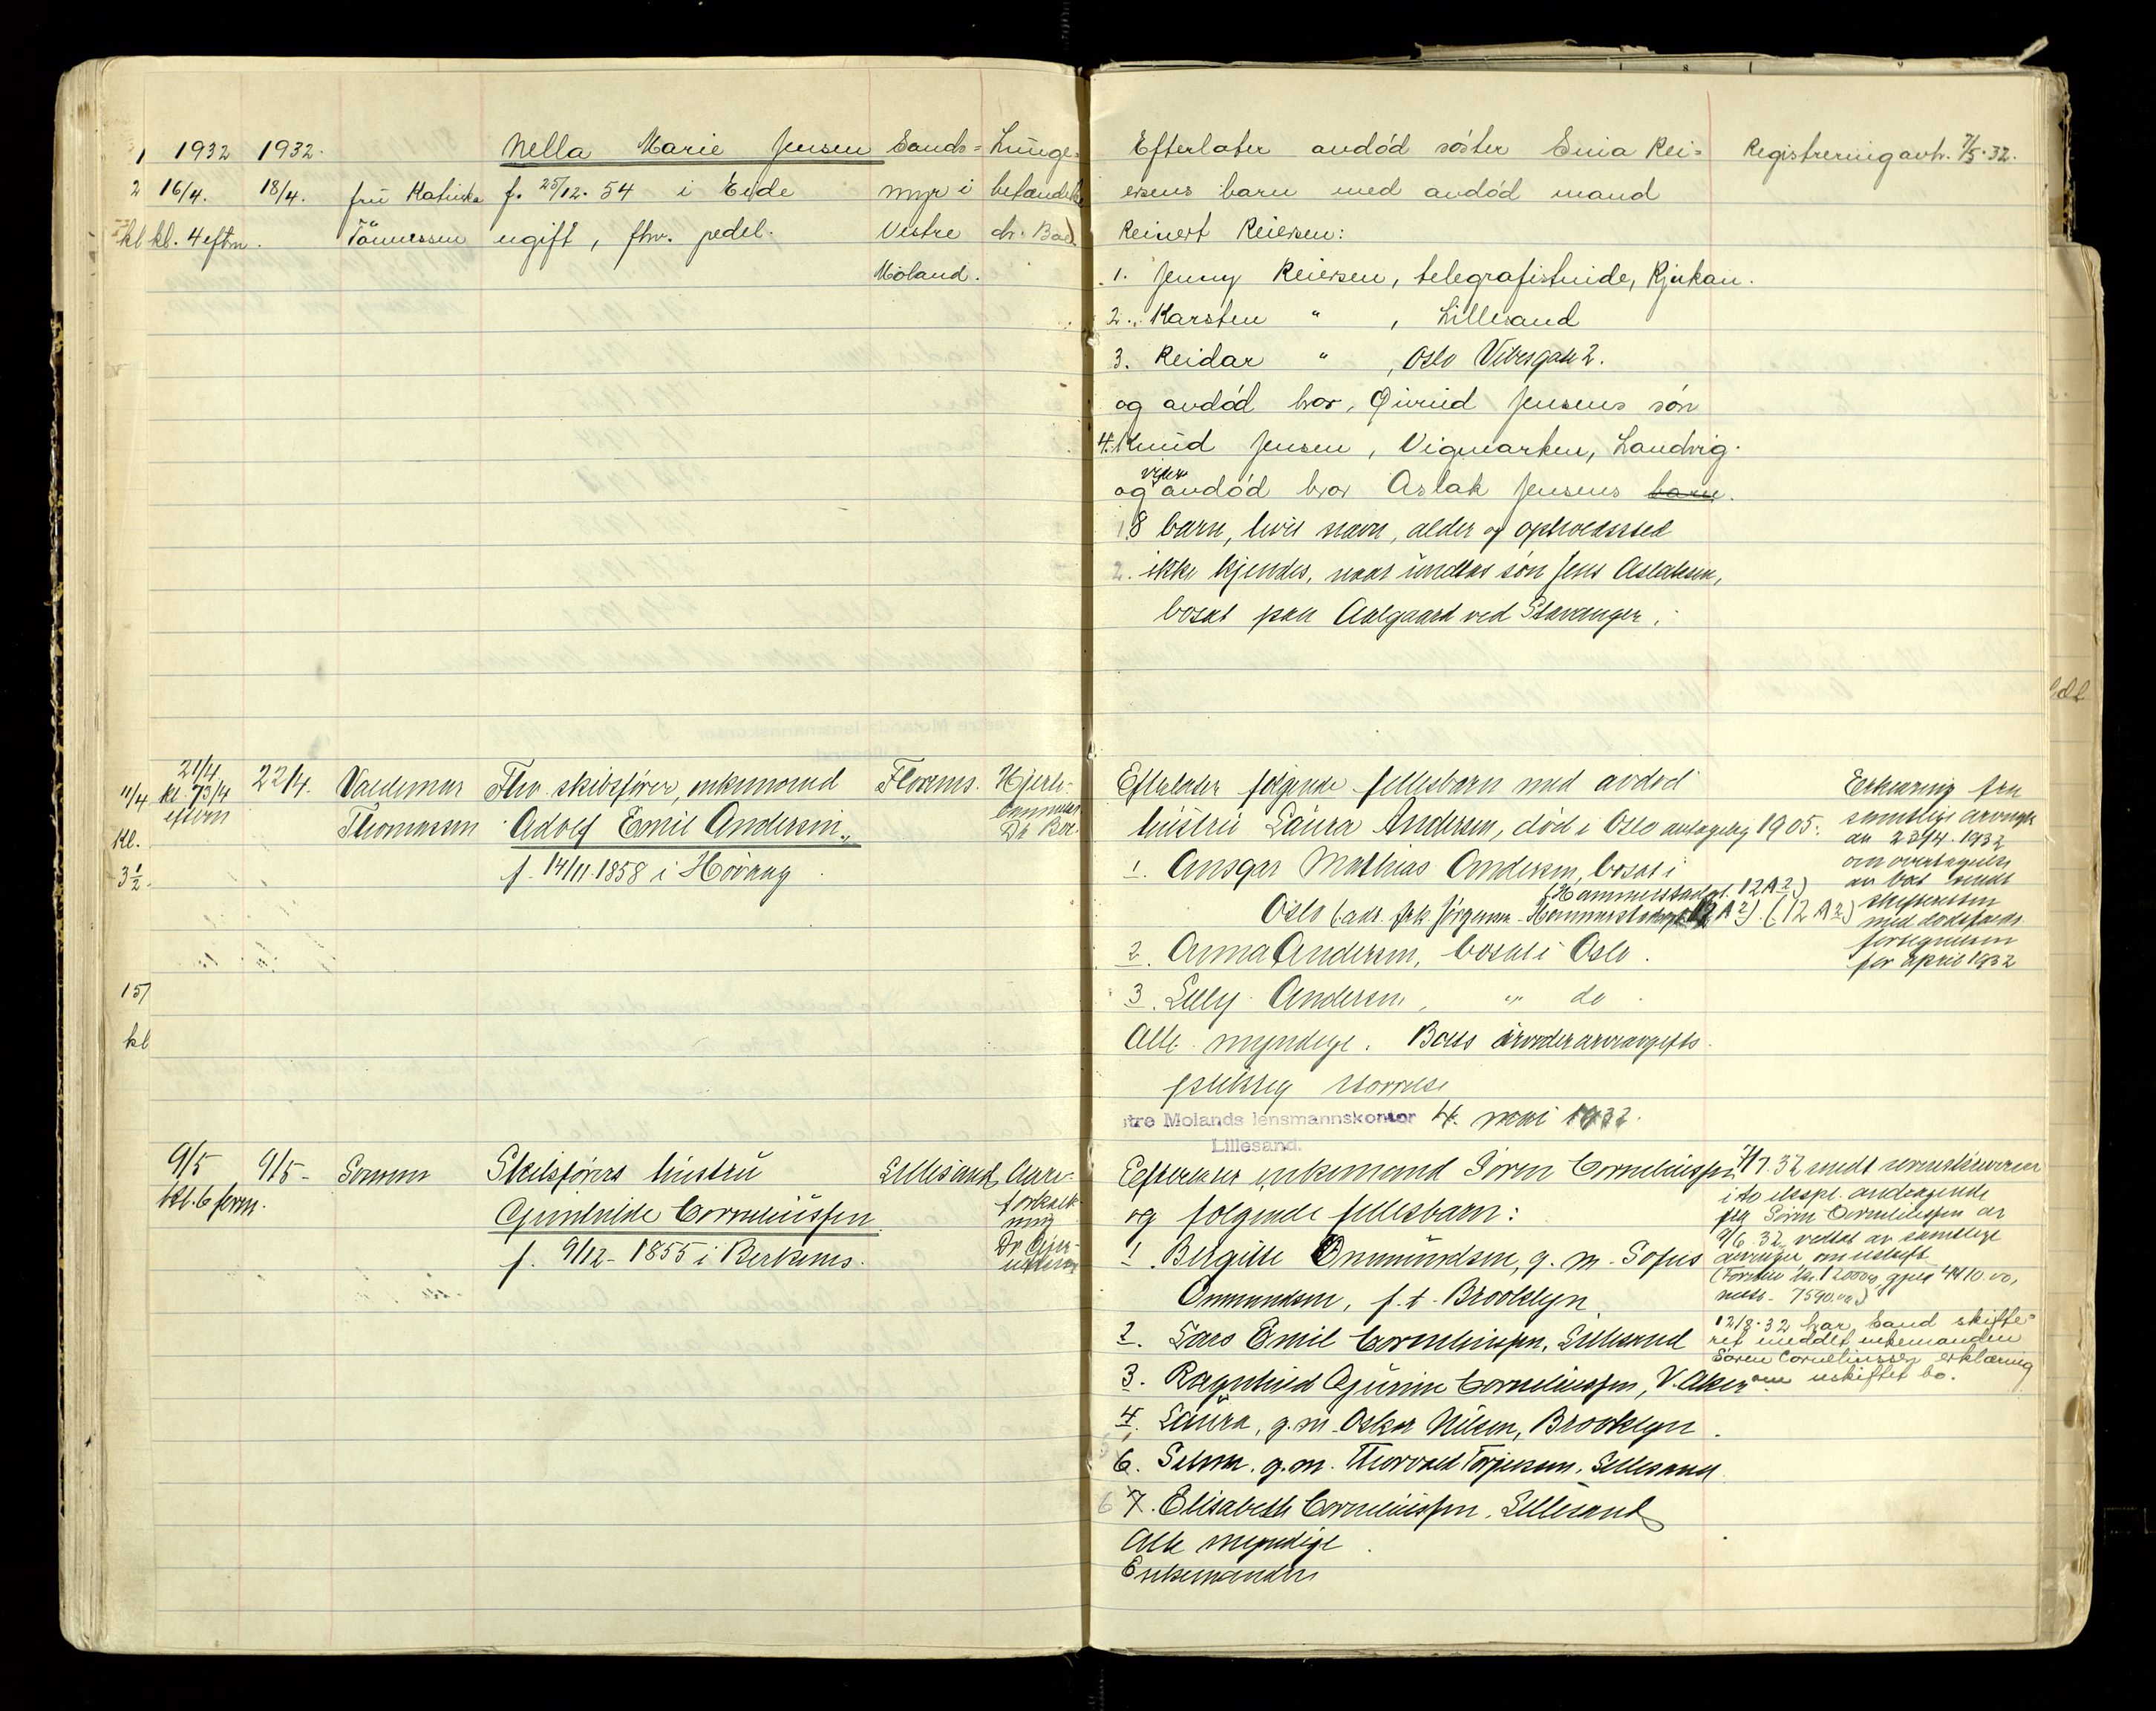 1932 1932.
16/4. 18/4.
kl. 4 eftm.
fru Katinka
Tönnessen
Nella Marie Jensen
f. 25/12. 54 i Eide
ugift, fhv. pedel.
Sands-
myr i
Vestre
Moland.
Lunge-
betændelse
dr. Boe
Efterlater avdød søster Sina Rei-
ersens barn med avdød mand
Reinert Reiersen:
1. Jenny Reiersen, telegrafistinde, Rjukan.
2. Karsten " , Lillesand
3. Reidar " , Oslo Vibesgate 2.
og avdød bror, Øivind Jensens søn
4. Knud Jensen, Vigmarken, Landvig.
og videre avdød bror Aslak Jensens barn.
8 barn, hvis navn, alder og opholdssted
ikke kjendes, naar undtas søn Jens Aslaksen,
bosat paa Aalgaard ved Stavanger.
Registrering avh. 7/5. 32.
11/4
Kl.
3 1/2.
15/
kl
21/4
kl. 7 3/4
eftm
22/4.
Valdemar
Thomassen
Fhv. skibsfører, enkemand
Adolf Emil Andersen
f. 14/11. 1858 i Høvaag
Florenes.
Hjerte-
Dr Boe.
Efterlater følgende fellesbarn med avdød
hustru Laura Andersen, død i Oslo antagelig 1905:
1. Ansgar Mathias Andersen, bosat i
(Hammerstadgt. 12 A 2)
Oslo (adr. frk. Jørgensen Hammerstadgt. 12 A 2). (12 A 2)
2. Anna Andersen, bosat i Oslo.
3. Lilly Andersen, " do.
Alle myndige. Boets arveavgifts-
pliktig størrelse
Erklæring fra
samtlige
av 23/4. 1932
om overtagelse
av bo sendt
skifteretten
med dødsfalds
fortegnelsen
for april 1932
stre Molands lensmannskontor 4. mai 1932.
Lillesand.
9/5
kl. 6 form.
9/5 -
Sønnen
Skibsførers hustru
Gunhilde Corneliussen
f. 9/12 - 1855 i Birkenes.
Lillesand
Aare-
forkalk-
ning
Efterlater enkemand Søren Corneliussen
og følgende fellesbarn:
1. Bergitte Ommundsen, g. m. Sofus
Ommundsen, f. t. Brooklyn.
2. Lars Emil Corneliussen, Lillesand
3. Ragnhild Gurine Corneliussen, V. Aker
4. Laura, g. m. Oskar Nilsen, Brooklyn.
6. Selma, g. m. Thorvald Torjussen, Lillesand
7. Elisabeth Corneliussen, Lillesand
Alle myndige.
Enkemanden
7/7. 32 sendt sorenskriveren
i to ekspl. andragende
fra Søren Corneliussen av
9/6. 32, vedtat av samtlige
arvinger, om uskift
(Formue kr. 12000.00, gjeld 4410.00,
netto 7590.00)
12/8. 32 har Sand skifte-
ret meddelt enkemanden
Søren Corneliussen erklæring
om uskiftet bo.